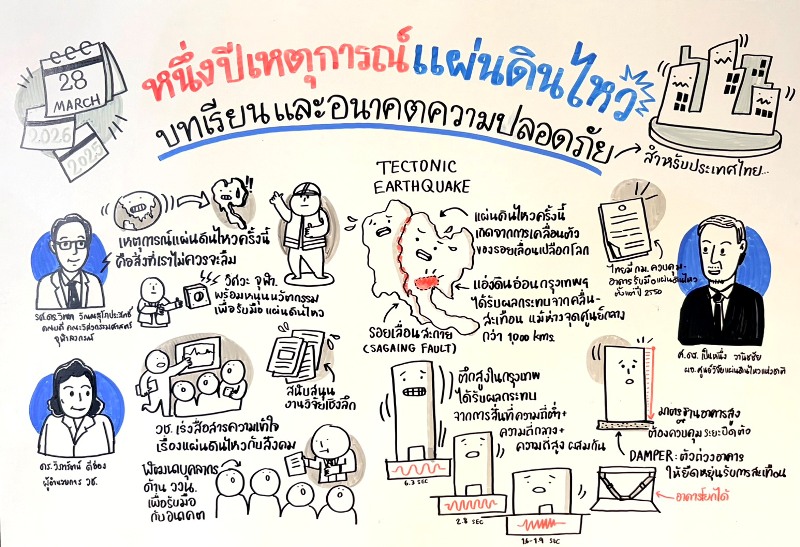 28
MARCH
2026
2025
หนึ่งปีเหตุการณ์แผ่นดินไหว
บทเรียนและอนาคตความปลอดภัย
สำหรับประเทศไทย...
เหตุการณ์แผ่นดินไหวครั้งนี้
คือสิ่งที่เราไม่ควรจะลืม
วิศวะ จุฬา.
พร้อมหนุนนวัตกรรม
เพื่อรับมือแผ่นดินไหว
คณบดี คณะวิศวกรรมศาสตร์
จุฬาลงกรณ์
TECTONIC
EARTHQUAKE
แผ่นดินไหวครั้งนี้
เกิดจากการเคลื่อนตัว
ของรอยเลื่อนเปลือกโลก
แอ่งดินอ่อนกรุงเทพฯ
ได้รับผลกระทบจากคลื่น-
สะเทือน แม้ห่างจุดศูนย์กลาง
กว่า 1000 kms.
รอยเลื่อนสะกาย
(SAGAING FAULT)
ไทยมีกม. ควบคุม-
อาคารรับมือแผ่นดินไหว
ตั้งแต่ปี 2550
ศ.ดร. เป็นหนึ่ง วานิชชัย
ผอ. ศูนย์วิจัยแผ่นดินไหวแห่งชาติ
ดร. วิภารัตน์ ดีอ่อง
ผู้อำนวยการ วช.
สนับสนุน
งานวิจัยเชิงลึก
วช. เร่งสื่อสารความเข้าใจ
เรื่องแผ่นดินไหวกับสังคม
พัฒนาบุคลากร
ด้าน ววน.
เพื่อรับมือ
กับอนาคต
ตึกสูงในกรุงเทพ
ได้รับผลกระทบ
จากการสั่นที่ความถี่ต่ำ+
ความถี่กลาง+
ความถี่สูง ผสมกัน
6.3 SEC
2.8 SEC
ต้องควบคุมระยะบิดตัว
DAMPER: ตัวถ่วงอาคาร
ให้ยืดหยุ่นรับการสะเทือน
อาคารโยกได้